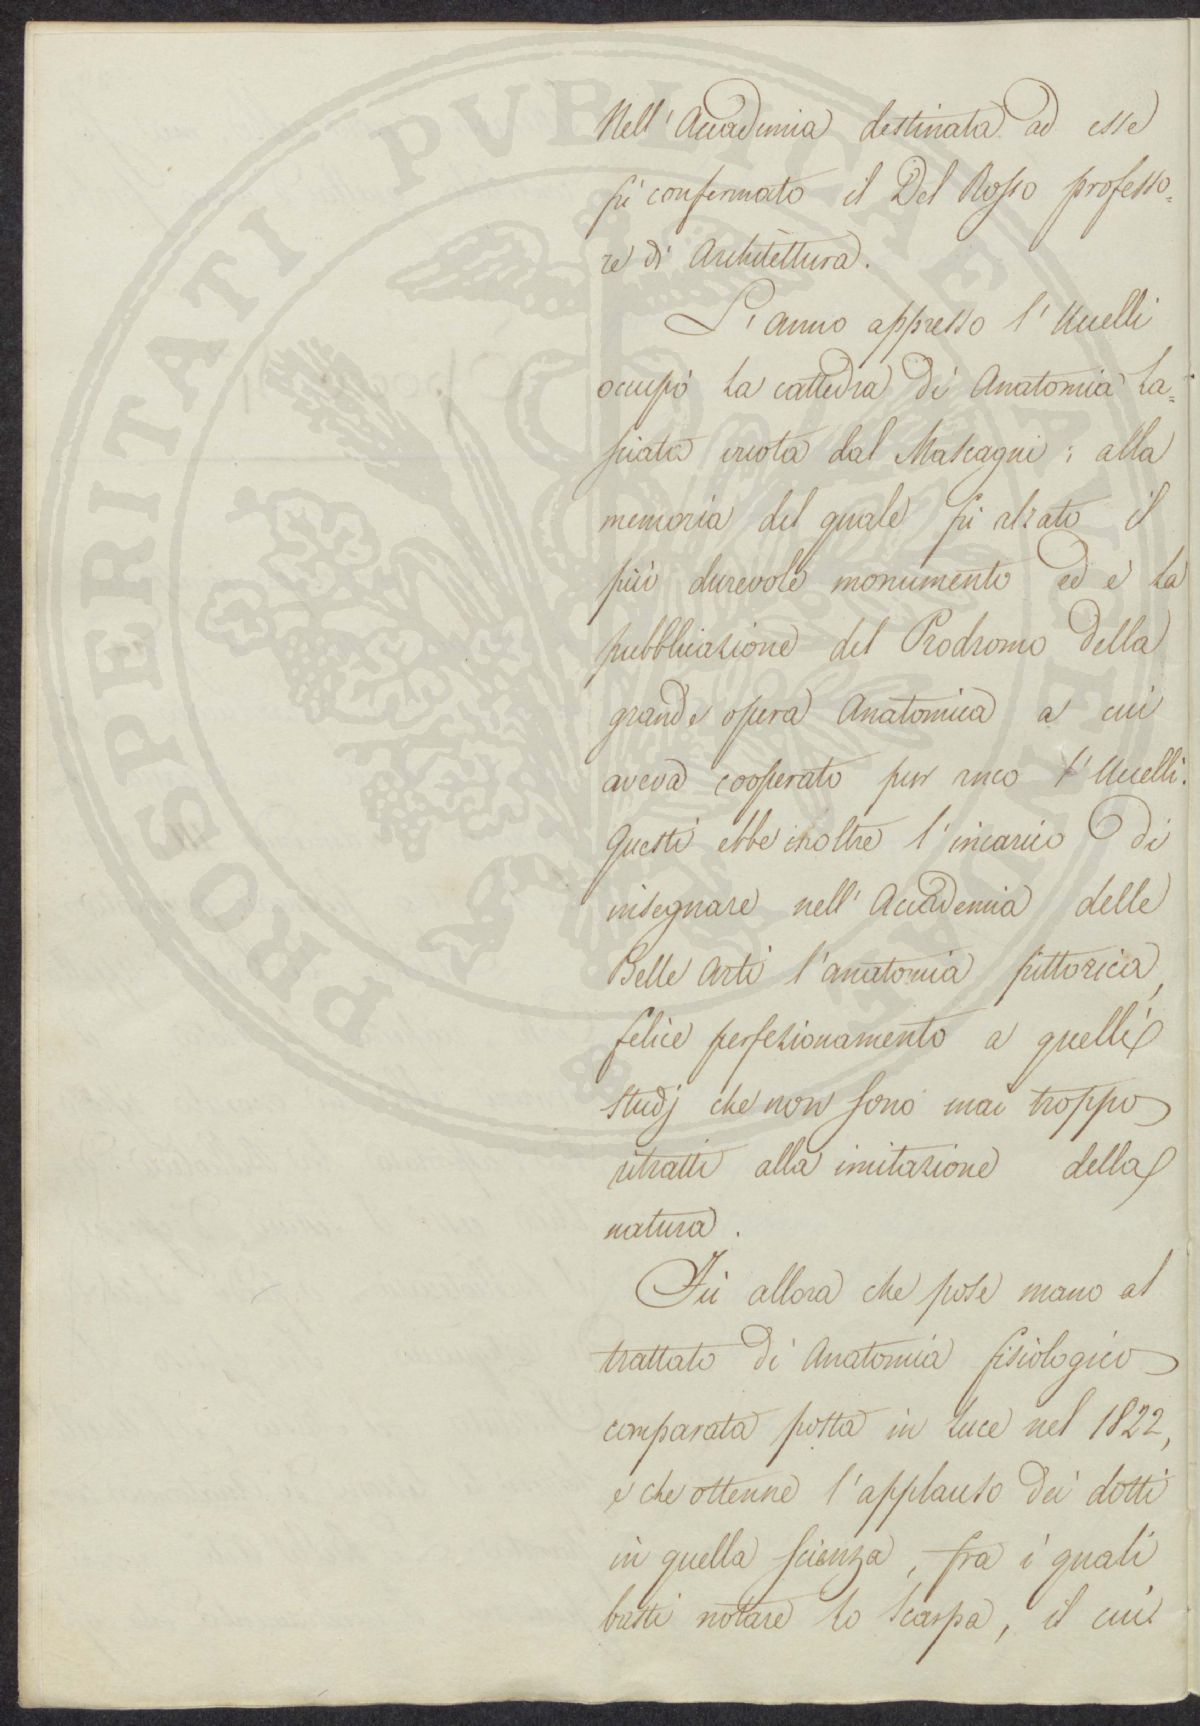 PROSPERITATI PVBLICAE AVGENDAE
Nell' Accademia destinata ad esse
fù confermato il Del Rosso professo=
re di Architettura.
L' anno appresso l' Uccelli
occupò la cattedra di Anatomia la=
sciata vuota dal Mascagni; alla
memoria del quale fù alzato il
più durevole monumento ed è la
pubblicazione del Prodromo della
grande opera Anatomica a cui
aveva cooperato pur anco l' Uccelli.
Questi ebbe inoltre l' incarico di
insegnare nell' Accademia delle
Belle Arti l' anatomia pittorica,
felice perfezionamento a quelli
studj che non sono mai troppo
ritratti alla imitazione della
natura.
Fù allora che pose mano al
trattato di Anatomia fisiologico
comparata posta in luce nel 1822,
e che ottenne l' applauso dei dotti
in quella scienza, fra i quali
basti notare lo Scarpa, il cui